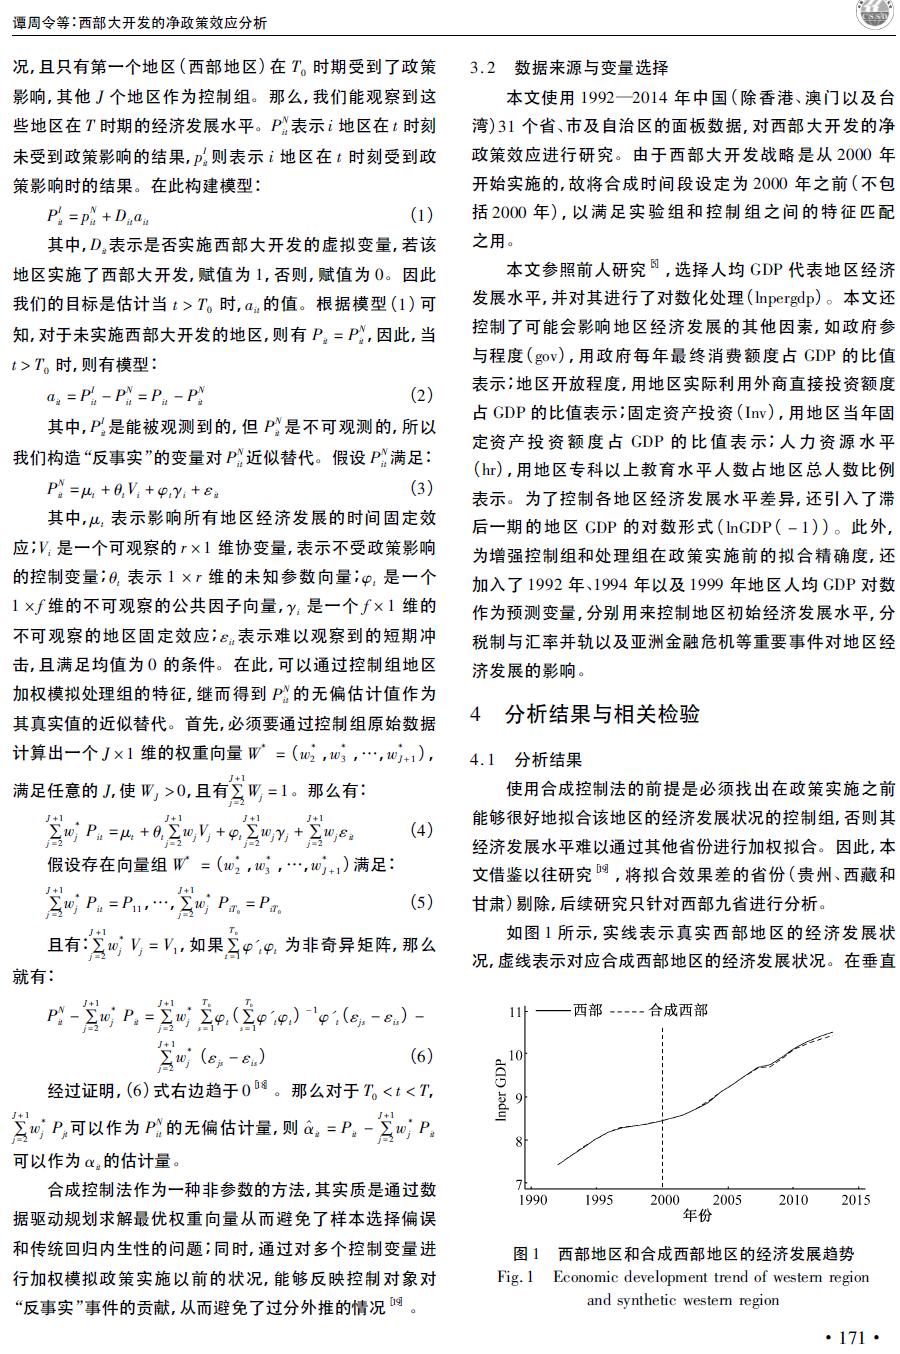 谭周令等:西部大开发的净政策效应分析
况,且只有第一个地区(西部地区)在 T₀ 时期受到了政策
影响,其他 J 个地区作为控制组。那么,我们能观察到这
些地区在 T 时期的经济发展水平。P_{it}^{N}表示 i 地区在 t 时刻
未受到政策影响的结果,p_{it}^{I}则表示 i 地区在 t 时刻受到政
策影响时的结果。在此构建模型:
P_{it}^{I} = p_{it}^{N} + D_{it}a_{it} (1)
其中,D_{it}表示是否实施西部大开发的虚拟变量,若该
地区实施了西部大开发,赋值为 1,否则,赋值为 0。因此
我们的目标是估计当 t > T₀ 时,a_{it}的值。根据模型(1)可
知,对于未实施西部大开发的地区,则有 P_{it} = P_{it}^{N},因此,当
t > T₀ 时,则有模型:
a_{it} = P_{it}^{I} - P_{it}^{N} = P_{it} - P_{it}^{N} (2)
其中,P_{it}^{I}是能被观测到的,但 P_{it}^{N}是不可观测的,所以
我们构造“反事实”的变量对 P_{it}^{N}近似替代。假设 P_{it}^{N}满足:
P_{it}^{N} = μ_{t} + θ_{t}V_{i} + φ_{t}γ_{i} + ε_{it} (3)
其中,μ_{t} 表示影响所有地区经济发展的时间固定效
应;V_{i} 是一个可观察的 r × 1 维协变量,表示不受政策影响
的控制变量;θ_{t} 表示 1 × r 维的未知参数向量;φ_{t} 是一个
1 × f 维的不可观察的公共因子向量,γ_{i} 是一个 f × 1 维的
不可观察的地区固定效应;ε_{it}表示难以观察到的短期冲
击,且满足均值为 0 的条件。在此,可以通过控制组地区
加权模拟处理组的特征,继而得到 P_{it}^{N}的无偏估计值作为
其真实值的近似替代。首先,必须要通过控制组原始数据
计算出一个 J × 1 维的权重向量 W* = (w_{2}^{*},w_{3}^{*},…,w_{J+1}^{*}),
满足任意的 J,使 W_{J} > 0,且有∑_{j=2}^{J+1}W_{j} = 1。那么有:
∑_{j=2}^{J+1}w_{j}^{*} P_{it} = μ_{t} + θ_{t}∑_{j=2}^{J+1}w_{j}V_{j} + φ_{t}∑_{j=2}^{J+1}w_{j}γ_{j} + ∑_{j=2}^{J+1}w_{j}ε_{it} (4)
假设存在向量组 W* = (w_{2}^{*},w_{3}^{*},…,w_{J+1}^{*})满足:
∑_{j=2}^{J+1}w_{j}^{*} P_{it} = P_{11},…,∑_{j=2}^{J+1}w_{j}^{*} P_{iT₀} = P_{iT₀} (5)
且有:∑_{j=2}^{J+1}w_{j}^{*} V_{j} = V_{1},如果∑_{t=1}^{T₀}φ′_{t}φ_{t} 为非奇异矩阵,那么
就有:
P_{it}^{N} - ∑_{j=2}^{J+1}w_{j}^{*} P_{it} = ∑_{j=2}^{J+1}w_{j}^{*} ∑_{s=1}^{T₀}φ_{t}(∑_{s=1}^{T₀}φ′_{t}φ_{t})^{-1}φ′_{t}(ε_{js} - ε_{is}) -
∑_{j=2}^{J+1}w_{j}^{*}(ε_{js} - ε_{is}) (6)
经过证明,(6)式右边趋于 0[18]。那么对于 T₀ < t < T,
∑_{j=2}^{J+1}w_{j}^{*} P_{jt}可以作为 P_{it}^{N}的无偏估计量,则 α̂_{it} = P_{it} - ∑_{j=2}^{J+1}w_{j}^{*} P_{it}
可以作为 α_{it}的估计量。
合成控制法作为一种非参数的方法,其实质是通过数
据驱动规划求解最优权重向量从而避免了样本选择偏误
和传统回归内生性的问题;同时,通过对多个控制变量进
行加权模拟政策实施以前的状况,能够反映控制对象对
“反事实”事件的贡献,从而避免了过分外推的情况[19]。
3.2 数据来源与变量选择
本文使用 1992—2014 年中国(除香港、澳门以及台
湾)31 个省、市及自治区的面板数据,对西部大开发的净
政策效应进行研究。由于西部大开发战略是从 2000 年
开始实施的,故将合成时间段设定为 2000 年之前(不包
括 2000 年),以满足实验组和控制组之间的特征匹配
之用。
本文参照前人研究[5],选择人均 GDP 代表地区经济
发展水平,并对其进行了对数化处理(lnpergdp)。本文还
控制了可能会影响地区经济发展的其他因素,如政府参
与程度(gov),用政府每年最终消费额度占 GDP 的比值
表示;地区开放程度,用地区实际利用外商直接投资额度
占 GDP 的比值表示;固定资产投资(Inv),用地区当年固
定资产投资额度占 GDP 的比值表示;人力资源水平
(hr),用地区专科以上教育水平人数占地区总人数比例
表示。为了控制各地区经济发展水平差异,还引入了滞
后一期的地区 GDP 的对数形式(lnGDP(-1))。此外,
为增强控制组和处理组在政策实施前的拟合精确度,还
加入了 1992 年、1994 年以及 1999 年地区人均 GDP 对数
作为预测变量,分别用来控制地区初始经济发展水平,分
税制与汇率并轨以及亚洲金融危机等重要事件对地区经
济发展的影响。
4 分析结果与相关检验
4.1 分析结果
使用合成控制法的前提是必须找出在政策实施之前
能够很好地拟合该地区的经济发展状况的控制组,否则其
经济发展水平难以通过其他省份进行加权拟合。因此,本
文借鉴以往研究[19],将拟合效果差的省份(贵州、西藏和
甘肃)剔除,后续研究只针对西部九省进行分析。
如图 1 所示,实线表示真实西部地区的经济发展状
况,虚线表示对应合成西部地区的经济发展状况。在垂直
西部 合成西部
11
10
9
8
7
lnper GDP
1990 1995 2000 2005 2010 2015
年份
图 1 西部地区和合成西部地区的经济发展趋势
Fig. 1 Economic development trend of western region
and synthetic western region
· 171 ·